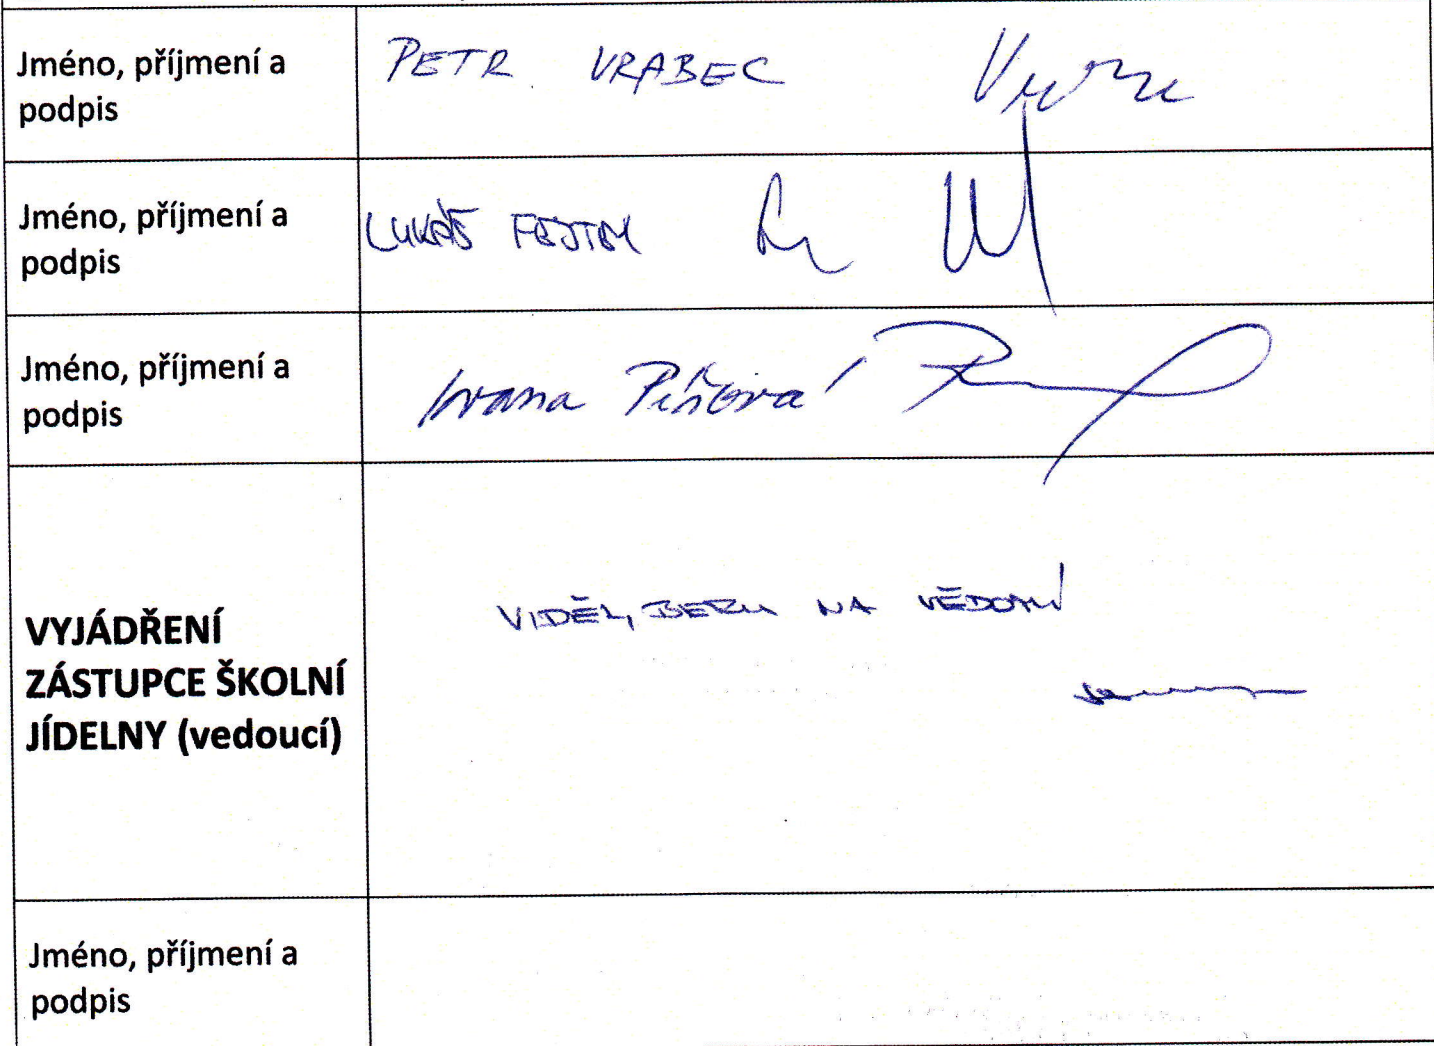 Jméno, příjmení a
podpis
PETR VRABEC
Jméno, příjmení a
podpis
LUKÁŠ
Jméno, příjmení a
podpis
Ivana
VYJÁDŘENÍ
ZÁSTUPCE ŠKOLNÍ
JÍDELNY (vedoucí)
VIDĚL, BERU NA VĚDOMÍ
Jméno, příjmení a
podpis